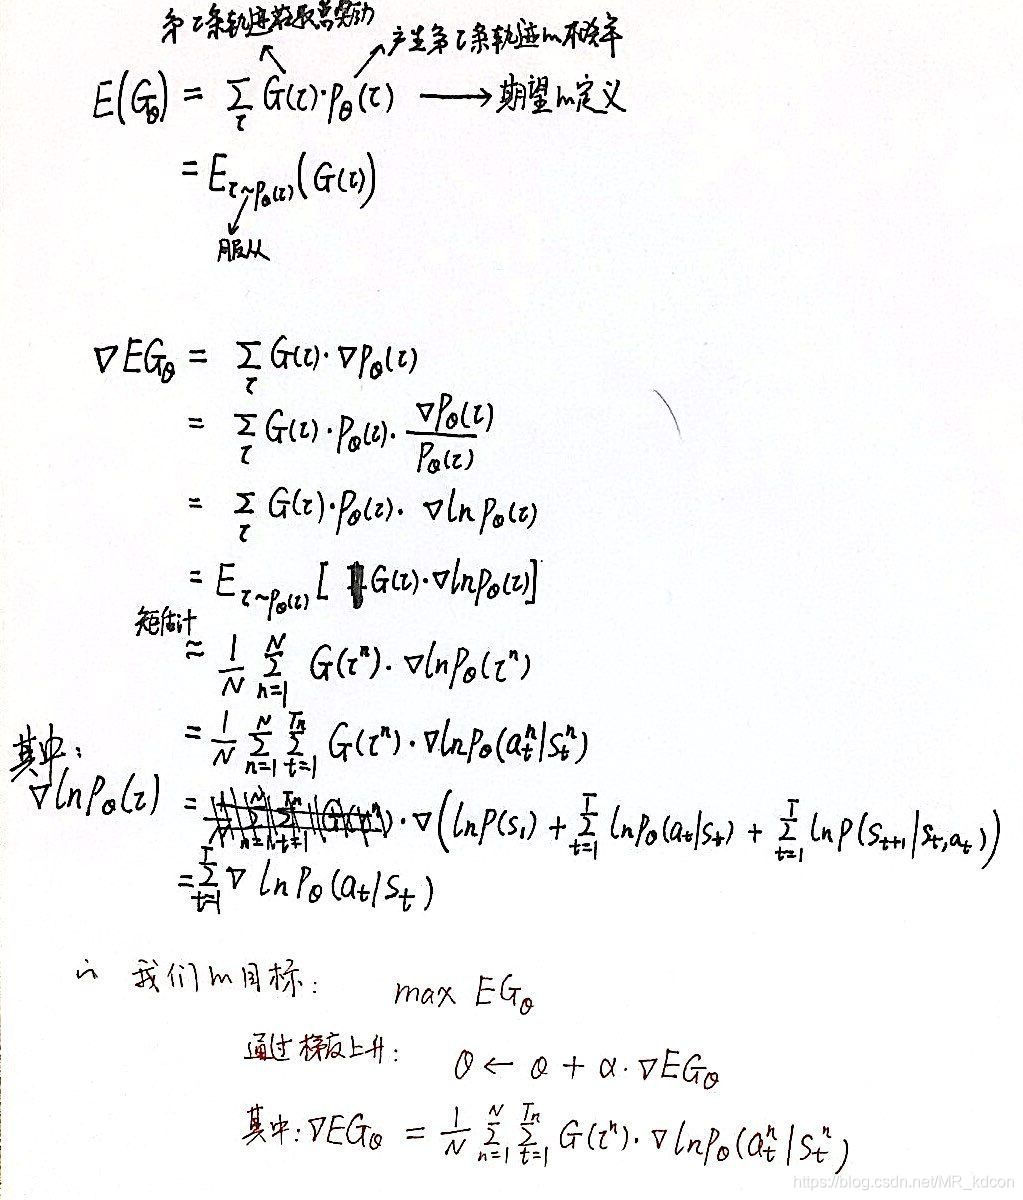 第τ条轨迹获取总奖励
产生第τ条轨迹的概率
E(G_θ) = Σ_τ G(τ)·P_θ(τ) ⟶ 期望的定义
= E_{τ~P_θ(τ)}(G(τ))
服从
∇EG_θ = Σ_τ G(τ)·∇P_θ(τ)
= Σ_τ G(τ)·P_θ(τ)·∇P_θ(τ)/P_θ(τ)
= Σ_τ G(τ)·P_θ(τ)·∇lnP_θ(τ)
= E_{τ~P_θ(τ)}[G(τ)·∇lnP_θ(τ)]
矩估计
≈ 1/N Σ_{n=1}^{N} G(τ^n)·∇lnP_θ(τ^n)
= 1/N Σ_{n=1}^{N} Σ_{t=1}^{T_n} G(τ^n)·∇lnP_θ(a_t^n|s_t^n)
其中:
∇lnP_θ(τ) = ·∇(lnP(s_1) + Σ_{t=1}^{T} lnP_θ(a_t|s_t) + Σ_{t=1}^{T} lnP(s_{t+1}|s_t,a_t))
= Σ_{t=1}^{T} ∇lnP_θ(a_t|s_t)
∴ 我们的目标: max EG_θ
通过梯度上升: θ ← θ + α·∇EG_θ
其中: ∇EG_θ = 1/N Σ_{n=1}^{N} Σ_{t=1}^{T_n} G(τ^n)·∇lnP_θ(a_t^n|s_t^n)
https://blog.csdn.net/MR_kdcon